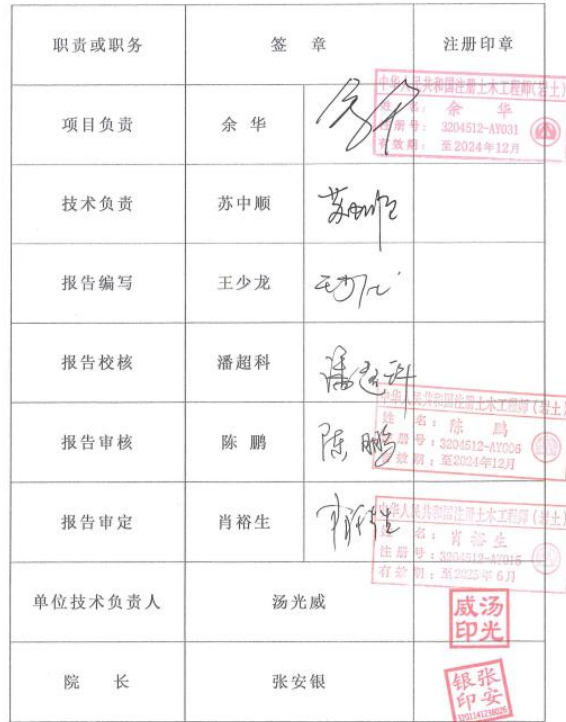 职责或职务 签 章 注册印章
项目负责 余 华 余华
中华人民共和国注册土木工程师(岩土)
姓 名: 余 华
注册号: 3204512-AY031
有效期: 至2024年12月
技术负责 苏中顺 苏中顺
报告编写 王少龙 王少龙
报告校核 潘超科 潘超科
报告审核 陈 鹏 陈鹏
中华人民共和国注册土木工程师(岩土)
姓 名: 陈 鹏
注册号: 3204512-AY006
有效期: 至2024年12月
报告审定 肖裕生 肖裕生
中华人民共和国注册土木工程师(岩土)
姓 名: 肖裕生
注册号: 3204512-AY015
有效期: 至2025年6月
单位技术负责人 汤光威
威汤
印光
院 长 张安银
银张
印安